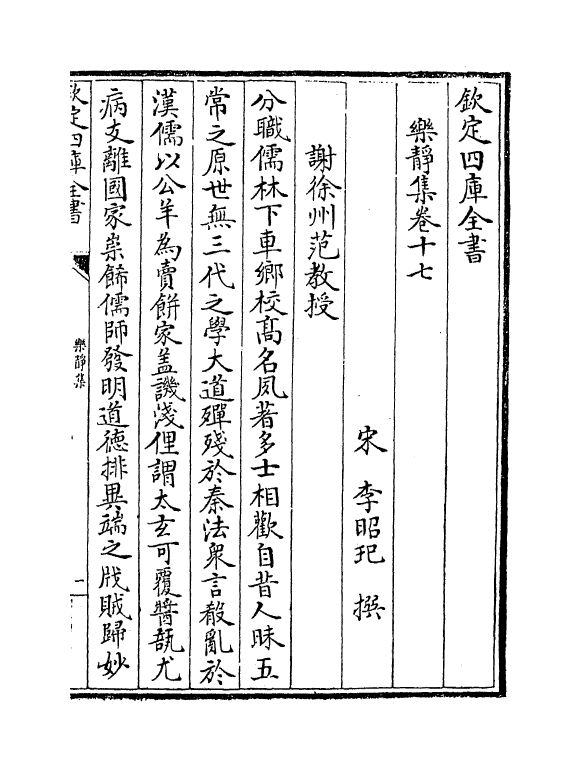 欽定四庫全書
樂靜集卷十七
宋 李昭玘 撰
謝徐州范教授
分職儒林下車鄉校髙名夙著多士相歡自昔人昧五
常之原世無三代之學大道殫殘於秦法衆言殽亂於
漢儒以公羊為賣餅家盖譏淺俚謂太玄可覆醬瓿尤
病支離國家崇飾儒師發明道德排異端之戕賊歸妙
欽定四庫全書
樂靜集
一